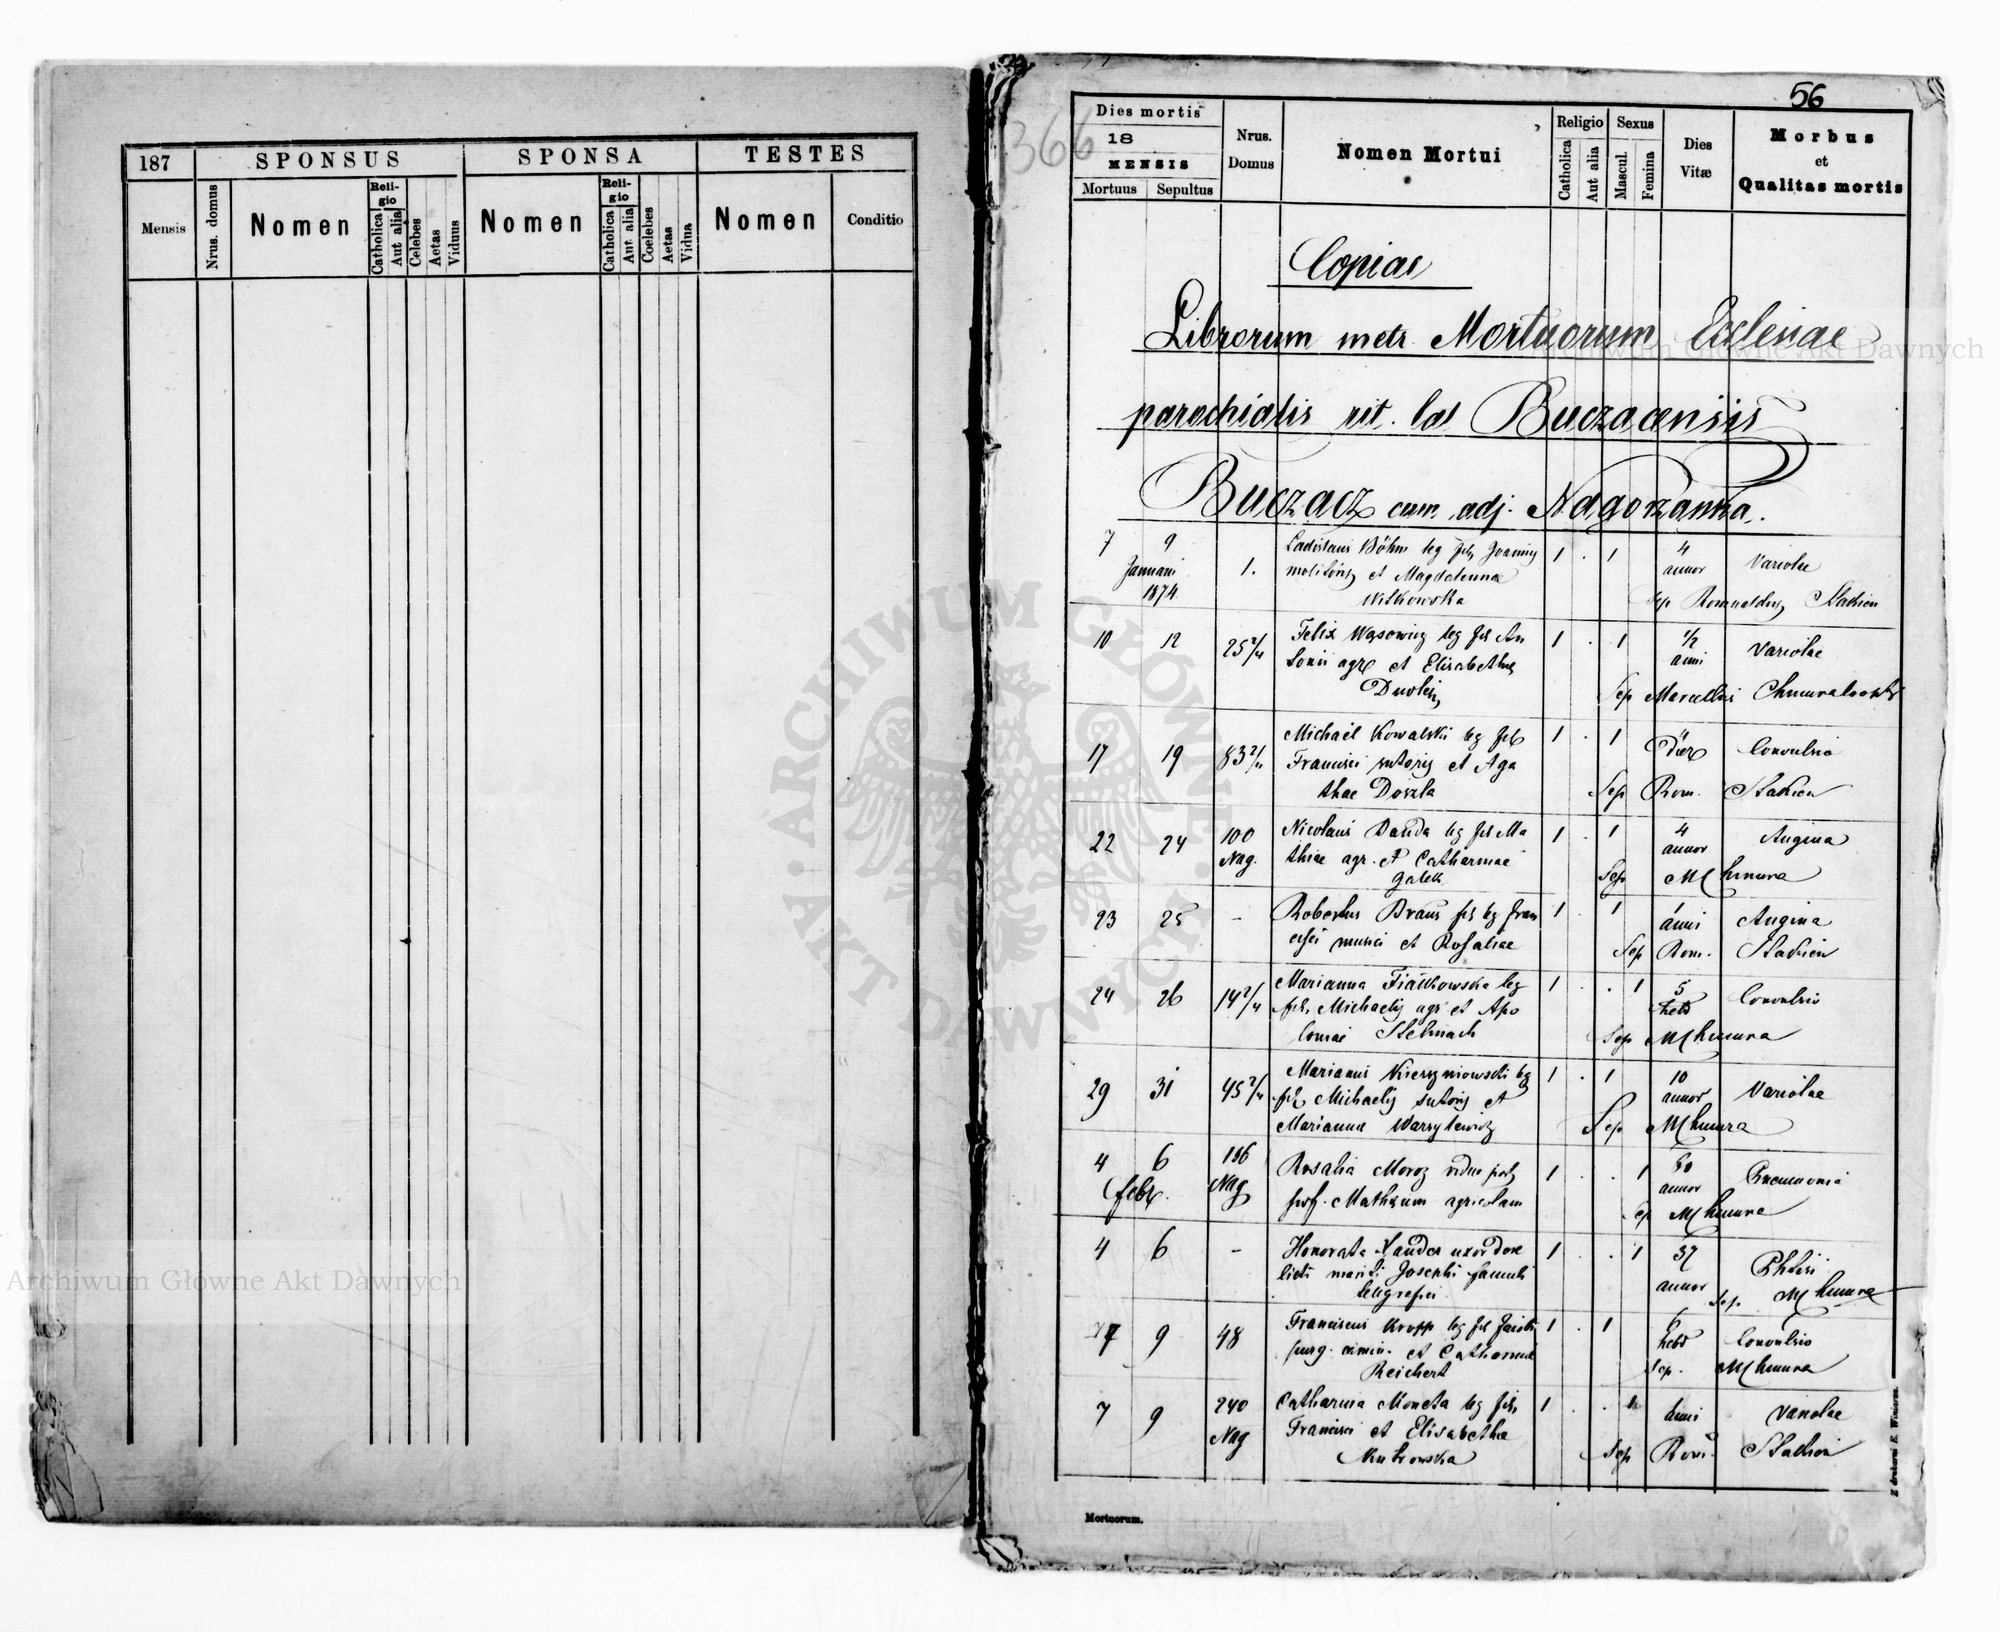 187
SPONSUS
SPONSA
TESTES
Mensis
Nrus. domus
Nomen
Reli-
gio
Catholica
Aut alia
Celebes
Aetas
Viduus
Nomen
Reli-
gio
Catholica
Aut alia
Coelebes
Aetas
Vidua
Nomen
Conditio
366
56
Dies mortis
18
MENSIS
Mortuus
Sepultus
Nrus.
Domus
Nomen Mortui
Religio
Catholica
Aut alia
Sexus
Mascul.
Femina
Dies
Vitæ
Morbus
et
Qualitas mortis
Copiae
Librorum metr Mortuorum Ecclesiae
parochialis rit. lat Buczacensis
Buczacz cum adj. Nagorzanka.
7 9 Ladislaus Böhm leg fil Joannis 1 . 1 4
Januarii 1. molitoris et Magdalenae annor Variolae
1874 Witkowska Sep Romualdus Stachien
10 12 25 2/4 Felix Wąsowicz leg fil An 1 . 1 1/2 Variolae
tonii agr et Elisabethae anni
Sep Marcellus
17 19 83 Michael Kowalski leg fil 1 . 1 Convulsio
Francisci sutoris et Aga
thae Doszla Sep Rom. Stachien
22 24 100 Nicolaus Danda leg fil Ma 1 . 1 4 Angina
Nag. thiae agr. et Catharinae annor
Galek Sep MChmura
23 25 - Robertus Braus fil leg Fran 1 . 1 1 Angina
cisci musici et Rosaliae anni
Sep Rom. Stachien
24 26 14 2/4 Marianna Fiałkowska leg 1 . . 1 5 Convulsio
fil. Michaelis agr et Apo hebd
loniae Stelmach Sep MChmura
29 31 45 2/4 Marianus leg 1 . 1 10 Variolae
fil Michaelis sutoris et annor
Marianna Warzylewicz Sep MChmura
4 6 196 Rosalia Moroz vidua post 1 . . 1 Pneumonia
Febr. Nag Mathaeum agricolam annor
Sep MChmura
4 6 - Honorata uxor dere 1 . . 1 37 Phtisi
licti mariti Josephi famuli annor
telegrafici Sep. MChmura
7 9 48 Franciscus Kropp leg fil Jacobi 1 . 1 6 Convulsio
et Catharinae hebd
Reichert Sep. MChmura
7 9 240 Catharina Moneta leg fil, 1 . . 1 anni Variolae
Nag Francisci et Elisabethae
Sep Rom. Stachien
Mortuorum.
Z drukarni E. Winiarza
Archiwum Główne Akt Dawnych
Archiwum Główne Akt Dawnych
ARCHIWUM GŁÓWNE AKT DAWNYCH